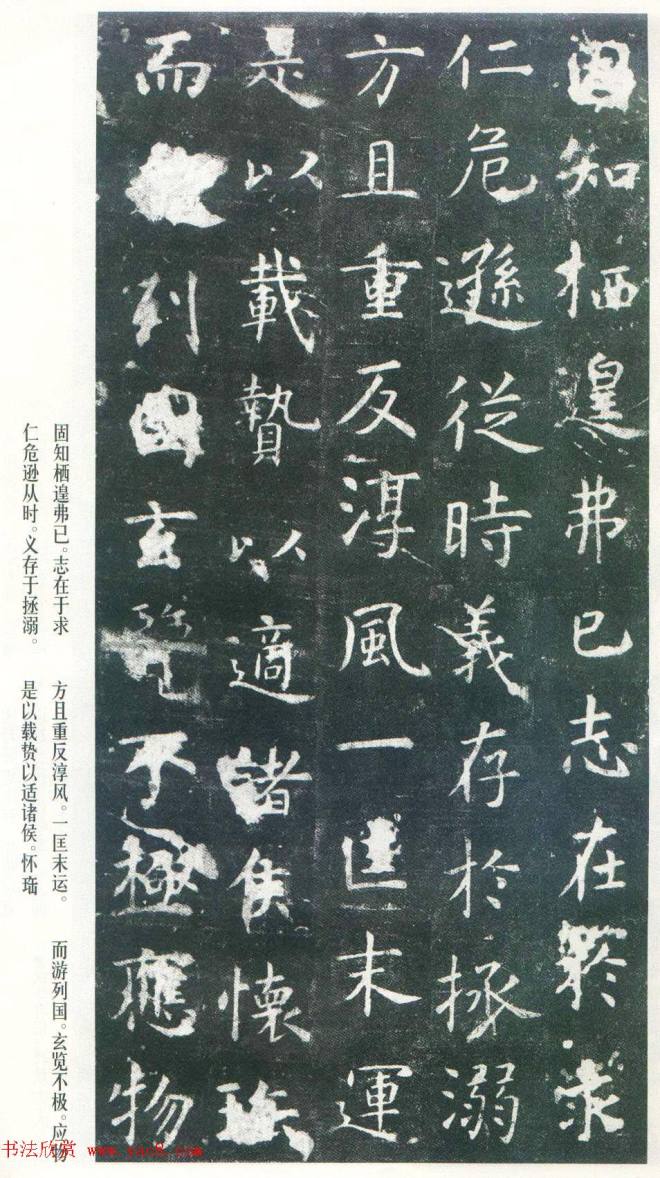 固知栖遑弗已志在於求
仁危遜從時義存於拯溺
方且重反淳風一匡末運
是以載贄以適諸侯懷
而列國玄覽不極應物
固知栖遑弗已。志在于求
仁危逊从时。义存于拯溺。
方且重反淳风。一匡末运。
是以载贽以适诸侯。怀
而游列国。玄览不极。应物
书法欣赏 www.yac8.com